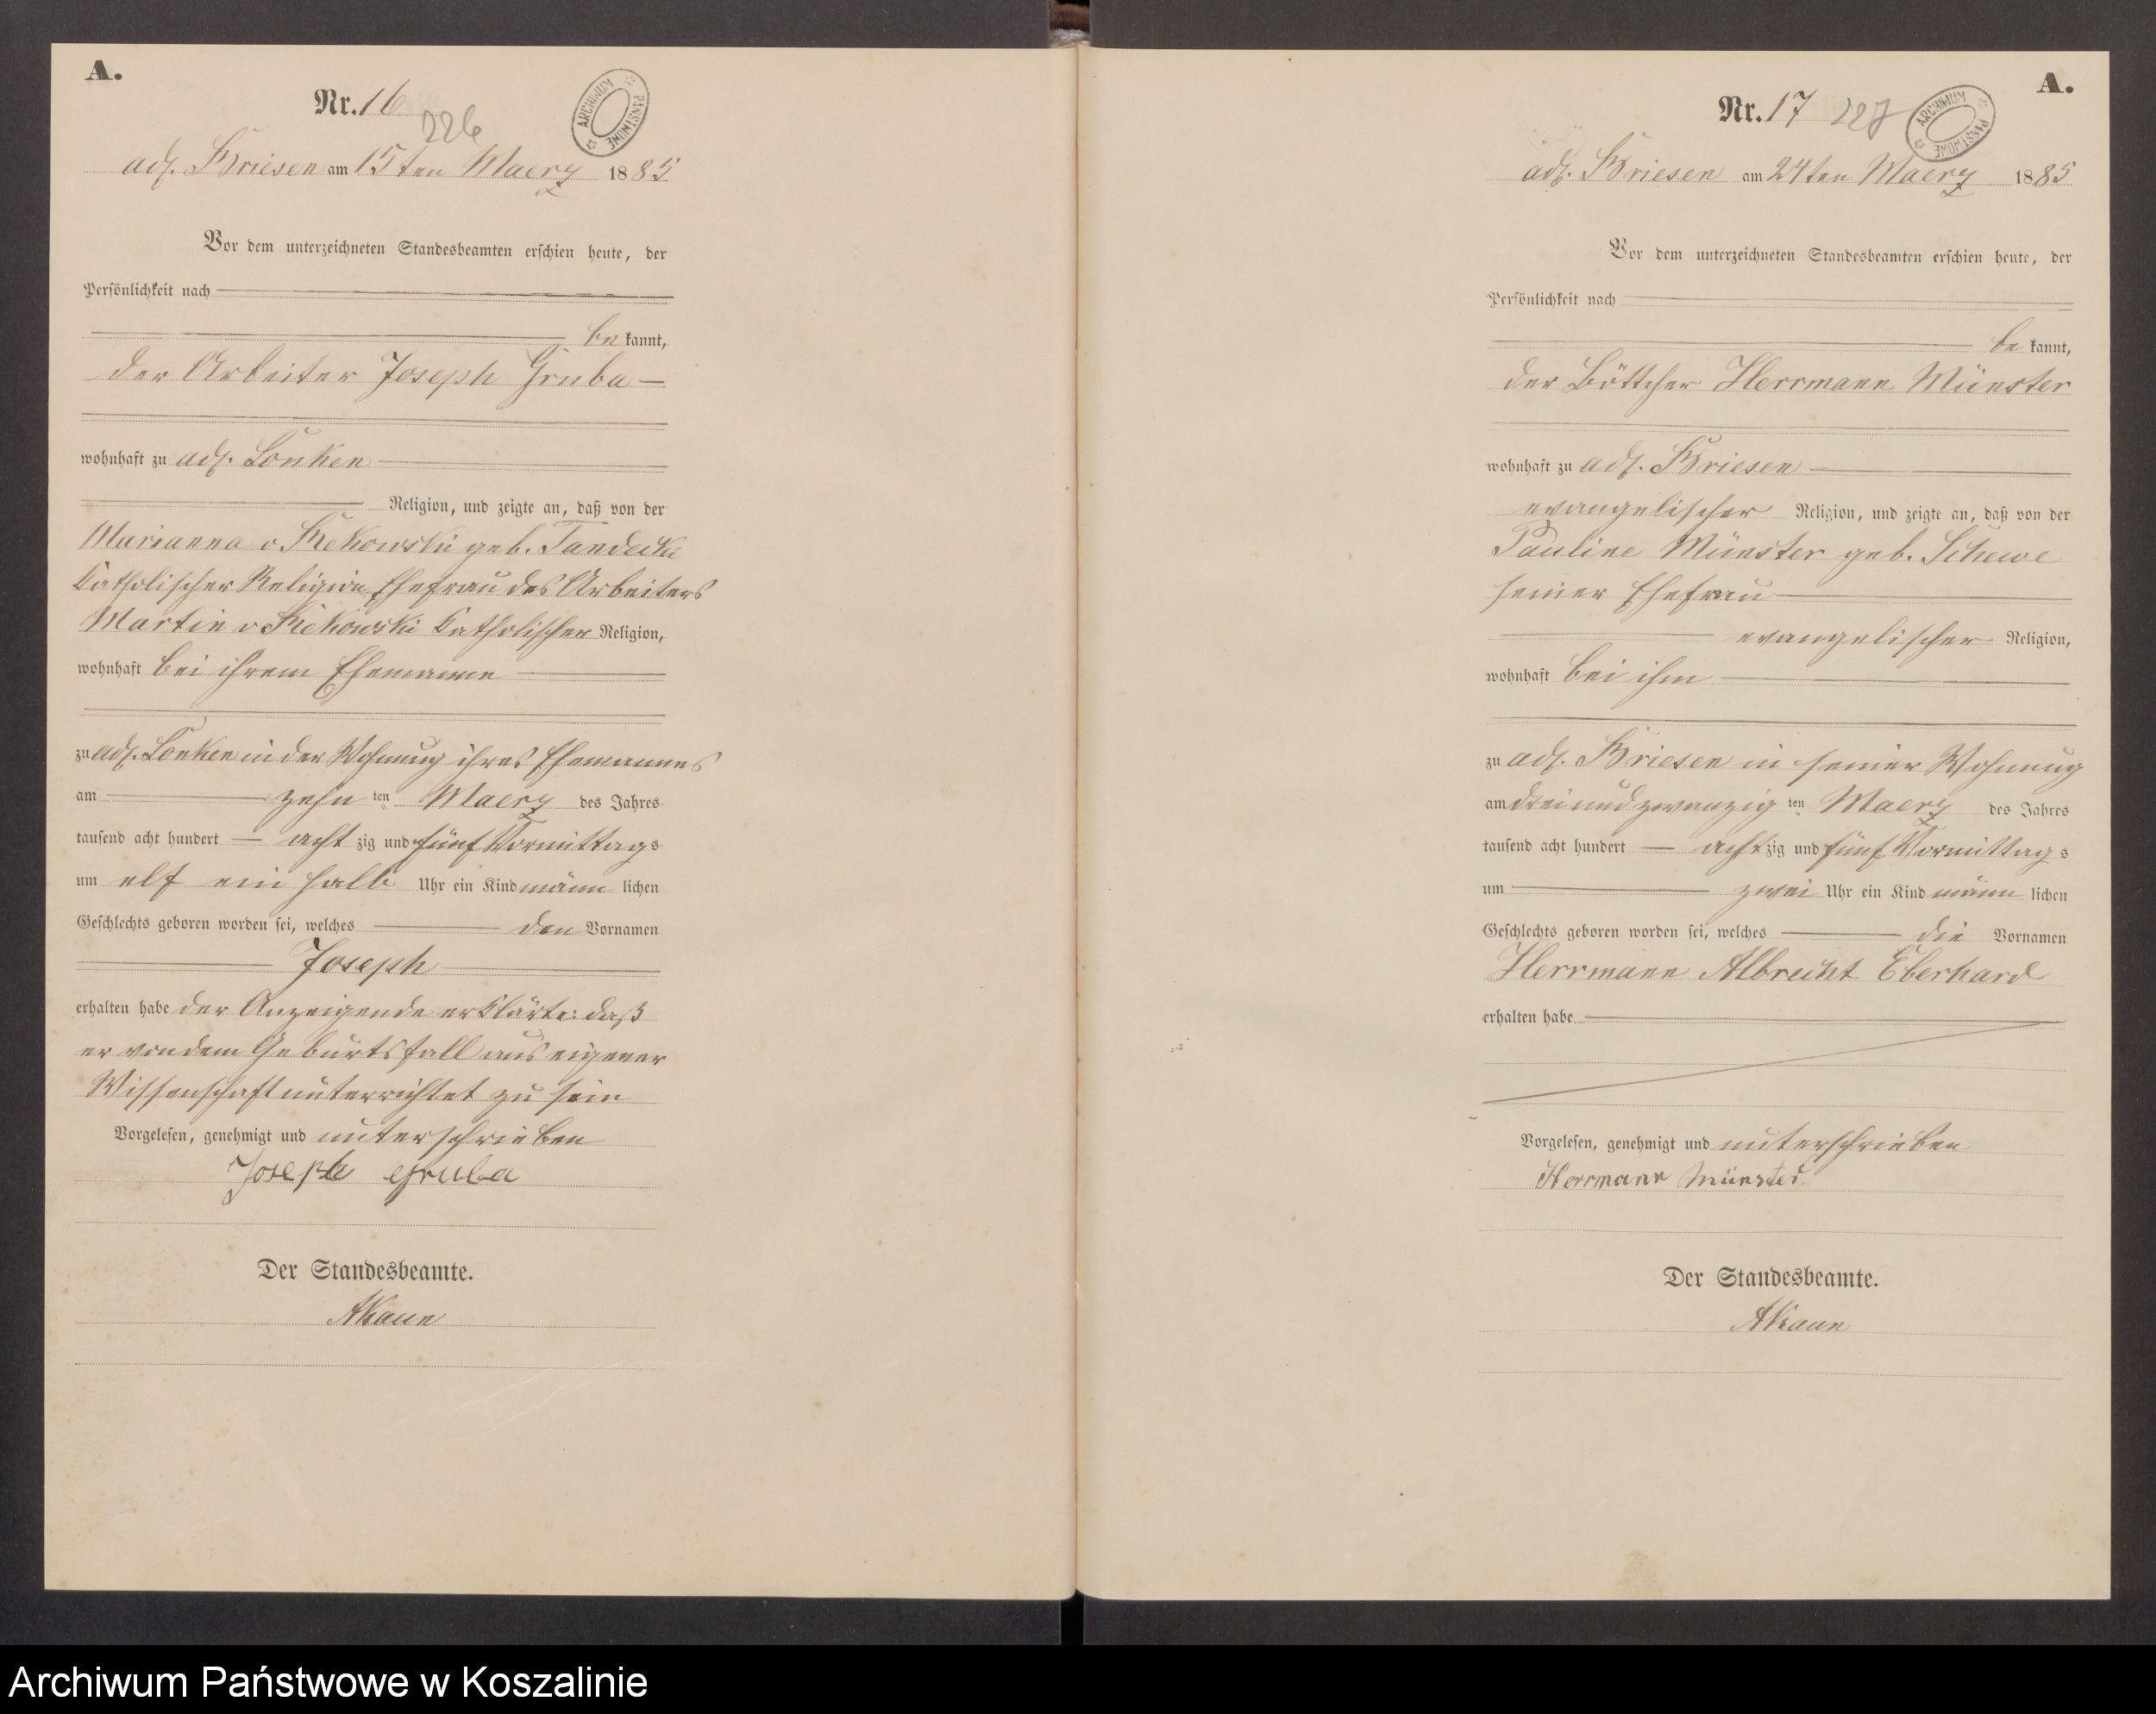 A.
Nr. 16
226
ARCHIWUM PAŃSTWOWE
adl. Briesen am 15ten Maerz 1885
Vor dem unterzeichneten Standesbeamten erschien heute, der
Persönlichkeit nach
be kannt,
der Arbeiter Joseph Gruba
wohnhaft zu adl. Lonken
Religion, und zeigte an, daß von der
Marianna v
geb.
Katholischer Religion Ehefrau des Arbeiters
Martin v
Katholischer Religion,
wohnhaft bei ihrem Ehemanne
zu adl. Lonken in der Wohnung ihres Ehemannes
am zehn ten Maerz des Jahres
tausend acht hundert acht zig und fünf Vormittags
um elf ein halb Uhr ein Kind männ lichen
Geschlechts geboren worden sei, welches den Vornamen
Joseph
erhalten habe der Anzeigende erklärte: daß
er von dem Geburtsfall aus eigener
Wissenschaft unterrichtet zu sein
Vorgelesen, genehmigt und unterschrieben
Joseph Gruba
Der Standesbeamte.
A.
Nr. 17
227
ARCHIWUM PAŃSTWOWE
adl. Briesen am 24ten Maerz 1885
Vor dem unterzeichneten Standesbeamten erschien heute, der
Persönlichkeit nach
be kannt,
der Böttcher Herrmann Münster
wohnhaft zu adl. Briesen
evangelischer Religion, und zeigte an, daß von der
Pauline Münster geb. Schewe
seiner Ehefrau
evangelischer Religion,
wohnhaft bei ihm
zu adl. Briesen in seiner Wohnung
am dreiundzwanzig ten Maerz des Jahres
tausend acht hundert acht zig und fünf Vormittags
um zwei Uhr ein Kind männ lichen
Geschlechts geboren worden sei, welches die Vornamen
Herrmann Albrecht Eberhard
erhalten habe
Vorgelesen, genehmigt und unterschrieben
Herrmann Münster
Der Standesbeamte.
Archiwum Państwowe w Koszalinie